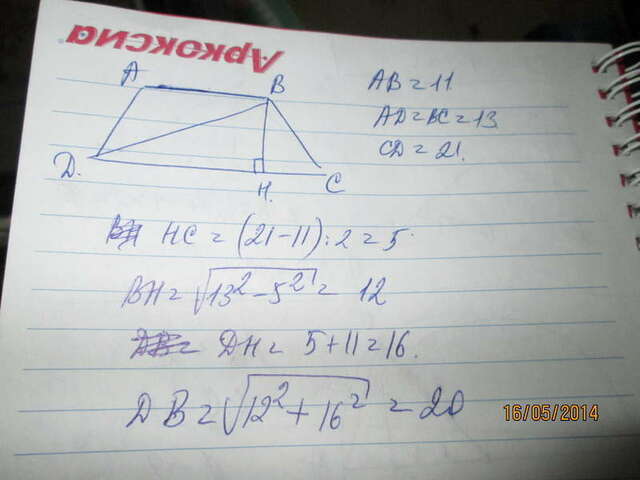 Аркоксиа
A
B
D.
H.
C
AB = 11
AD = BC = 13
CD = 21.
HC = (21-11):2 = 5
BH = √13²-5² = 12
DH = 5+11 = 16.
DB = √12²+16² = 20
16/05/2014